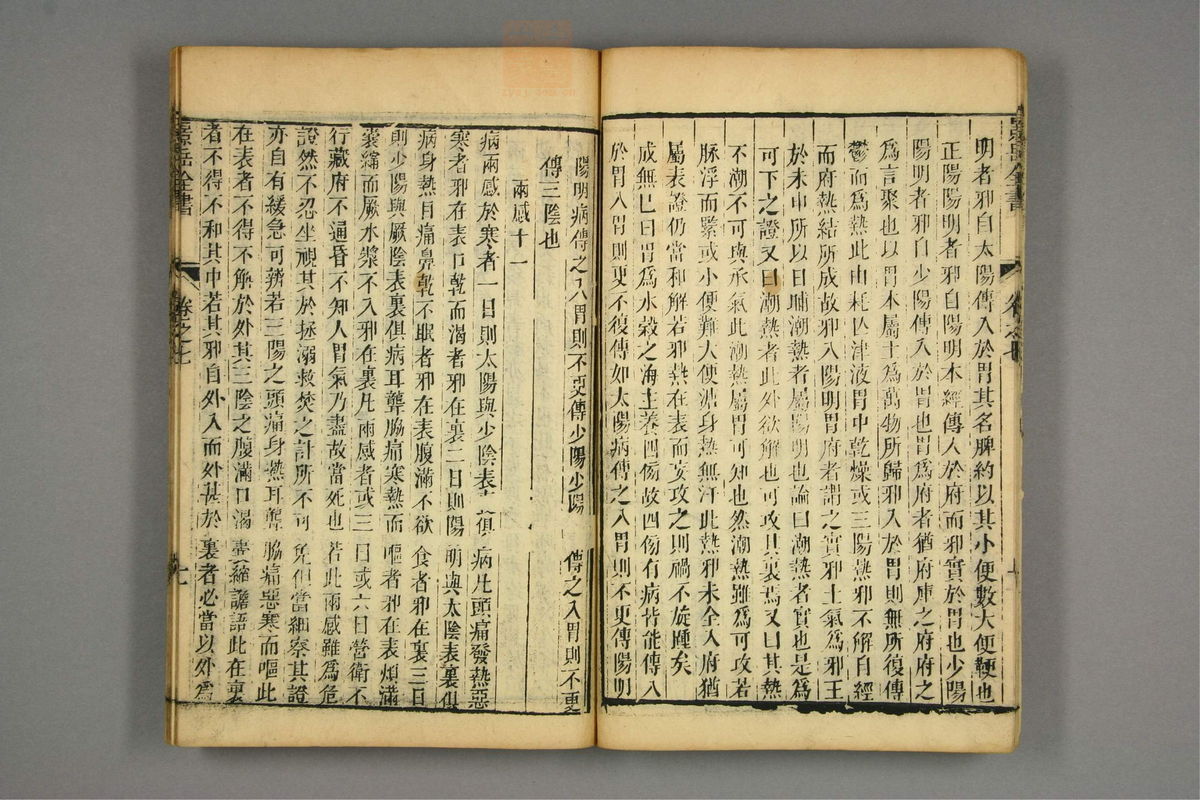 景岳全書
卷之七
十
明者邪自太陽傳入於胃其名脾約以其小便數大便鞕也
正陽陽明者邪自陽明本經傳入於府而邪實於胃也少陽
陽明者邪自少陽傳入於胃也胃為府者猶府庫之府府之
為言聚也以胃本屬土為萬物所歸邪入於胃則無所復傳
鬱而為熱此由耗亾津液胃中乾燥或三陽熱邪不解自經
而府熱結所成故邪入陽明胃府者謂之實邪土氣為邪王
於未申所以日晡潮熱者屬陽明也論曰潮熱者實也是為
可下之證又曰潮熱者此外欲解也可攻其裏焉又曰其熱
不潮不可與承氣此潮熱屬胃可知也然潮熱雖為可攻若
脉浮而緊或小便難大便溏身熱無汗此熱邪未全入府猶
屬表證仍當和解若邪熱在表而妄攻之則禍不旋踵矣
成無巳曰胃為水榖之海主養四傍故四傍有病皆能傳入
於胃入胃則更不復傳如太陽病傳之入胃則不更傳陽明
陽明病傳之入胃則不更傳少陽少陽 傳之入胃則不更
傳三陰也
兩感十一
病兩感於寒者一日則太陽與少陰表 俱 病凡頭痛發熱惡
寒者邪在表口乾而渴者邪在裏二日則陽 明與太陰表裏俱
病身熱目痛鼻乾不眠者邪在表腹滿不欲 食者邪在裏三日
則少陽與厥陰表裏俱病耳聾脇痛寒熱而 嘔者邪在表煩滿
囊縮而厥水漿不入邪在裏凡兩感者或三 日或六日營衛不
行藏府不通昏不知人胃氣乃盡故當死也 若此兩感雖為危
證然不忍坐視其於拯溺救焚之計所不可 免但當細察其證
亦自有緩急可辨若三陽之頭痛身熱耳聾 脇痛惡寒而嘔此
在表者不得不解於外其三陰之腹滿口渴 囊縮譫語此在裏
者不得不和其中若其邪自外入而外甚於 裏者必當以外為
景岳全書
卷之七
十